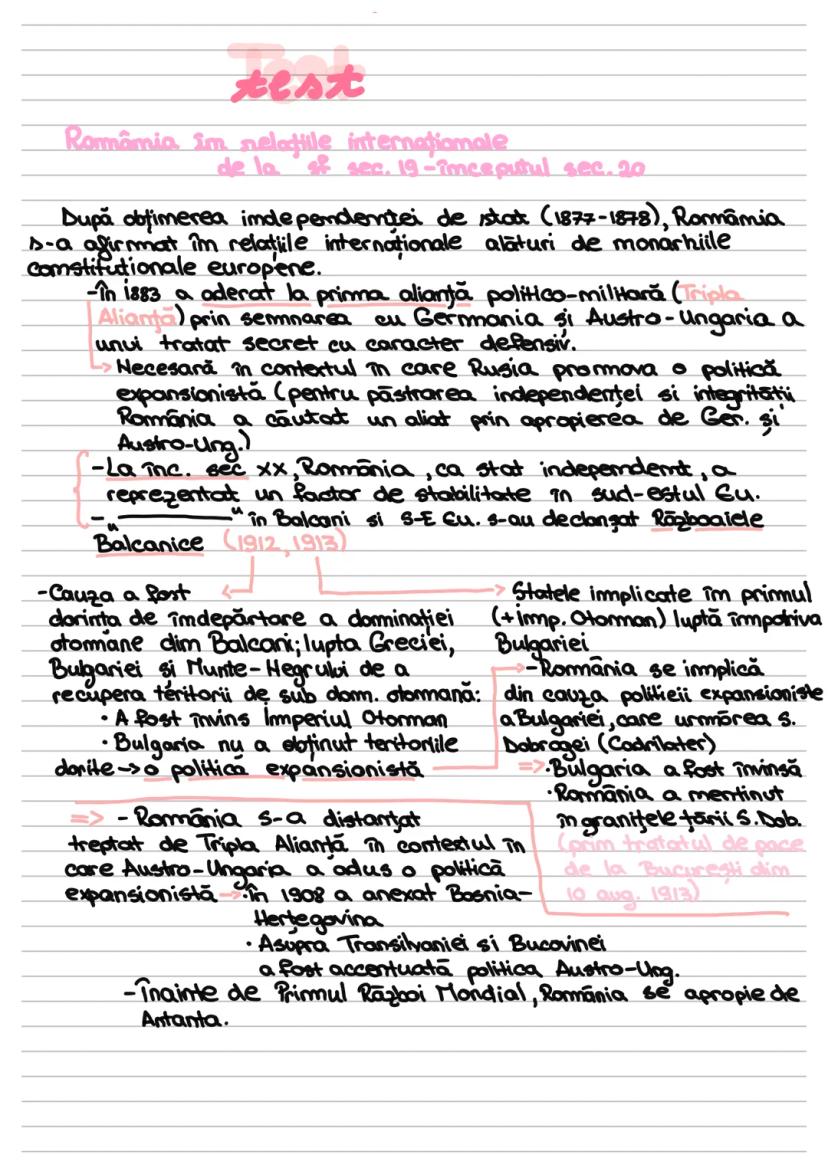 Test
test
România în relațiile internaționale
de la sf sec. 19 - începutul sec. 20
După obținerea independenței de stat (1877-1878), România
s-a afirmat în relațiile internaționale alături de monarhiile
constituționale europene.
-În 1883 a aderat la prima alianță politico-militară (Tripla
Alianță) prin semnarea cu Germania și Austro-Ungaria a
unui tratat secret cu caracter defensiv.
↳ Necesară în contextul în care Rusia promova o politică
expansionistă (pentru păstrarea independenței si integrității
România a căutat un aliat prin apropierea de Ger. și
Austro-Ung.)
-La înc. sec XX, România, ca stat independent, a
reprezentat un factor de stabilitate în sud-estul Eu.
- „———" în Balcani si S-E Eu. s-au declanșat Războaiele
Balcanice (1912, 1913)
-Cauza a fost
dorința de îndepărtare a dominației
otomane din Balcani; lupta Greciei,
Bulgariei și Munte-Negrului de a
recupera teritorii de sub dom. otomană:
• A fost învins Imperiul Otoman
• Bulgaria nu a obținut teritoriile
dorite → o politică expansionistă
→ Statele implicate în primul
(+imp. Otoman) luptă împotriva
Bulgariei
→ -România se implică
din cauza politicii expansioniste
a Bulgariei, care urmărea S.
Dobrogei (Cadrilater)
=> •Bulgaria a fost învinsă
•România a mentinut
în granițele țării S. Dob.
(prin tratatul de pace
de la București din
10 aug. 1913)
=> - România s-a distanțat
treptat de Tripla Alianță în contextul în
care Austro-Ungaria a adus o politică
expansionistă → •În 1908 a anexat Bosnia-
Herțegovina
• Asupra Transilvaniei si Bucovinei
a fost accentuată politica Austro-Ung.
-Înainte de Primul Război Mondial, România se apropie de
Antanta.